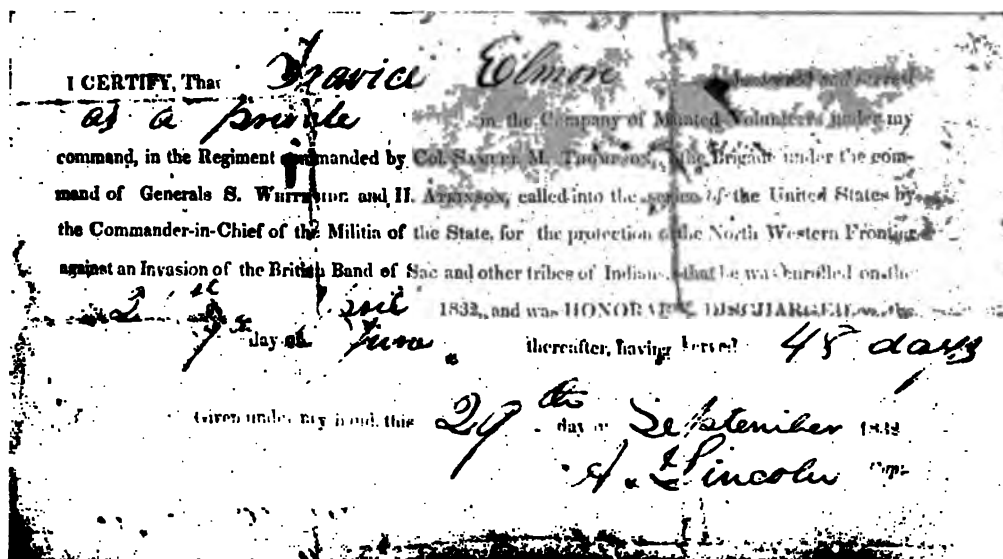 I CERTIFY, That Travice Elmore
as a private in the Company of Mounted Volunteers under my
command, in the Regiment commanded by Col. SAMUEL M. THOMPSON, the Brigade under the com-
mand of Generals S. WHITESIDE and H. ATKINSON, called into the service of the United States by
the Commander-in-Chief of the Militia of the State, for the protection of the North Western Frontier
against an Invasion of the British Band of Sac and other tribes of Indians, that he was enrolled on the
1832, and was HONORABLY DISCHARGED on the
7th day of June thereafter, having served 48 days
Given under my hand, this 29th day of September 1832
A. Lincoln Capt.